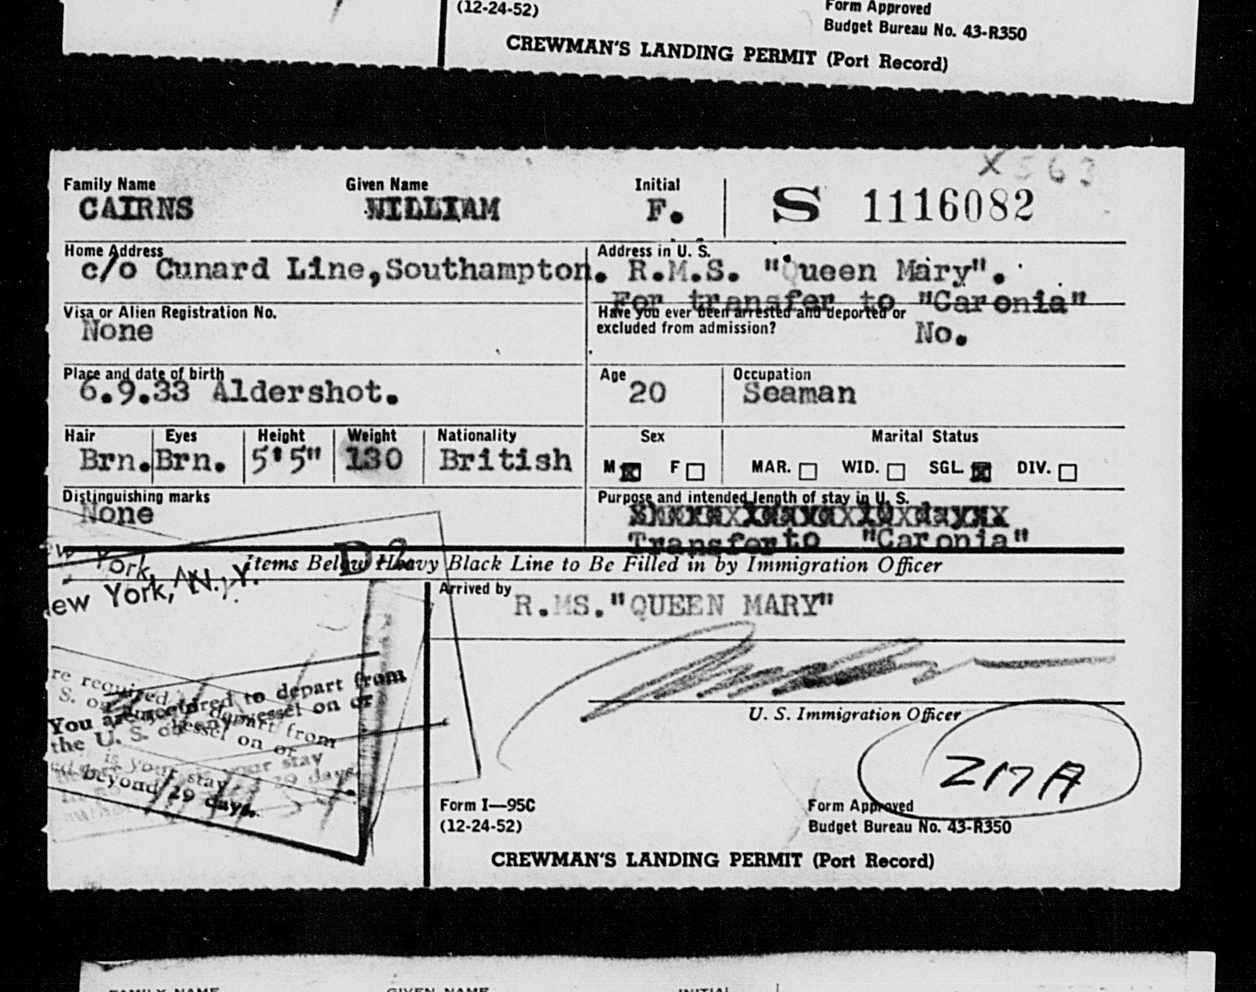 (12-24-52)
Form Approved
Budget Bureau No. 43-R350
CREWMAN'S LANDING PERMIT (Port Record)
X563
Family Name Given Name Initial
CAIRNS WILLIAM F. S 1116082
Home Address Address in U. S.
c/o Cunard Line,Southampton. R.M.S. "Queen Mary".
For transfer to "Caronia"
Visa or Alien Registration No. Have you ever been arrested and deported or
excluded from admission?
None No.
Place and date of birth Age Occupation
6.9.33 Aldershot. 20 Seaman
Hair Eyes Height Weight Nationality Sex Marital Status
Brn. Brn. 5'5" 130 British M F MAR. WID. SGL. DIV.
Distinguishing marks Purpose and intended length of stay in U. S.
None
Transfer to "Caronia"
Items Below Heavy Black Line to Be Filled in by Immigration Officer
York, N. Y.
New York, N. Y.
Arrived by
R.MS."QUEEN MARY"
You are required to depart from
the U. S. on
vessel on or
is your stay
beyond 29 days.
U. S. Immigration Officer
Z17A
Form I—95C
(12-24-52)
Form Approved
Budget Bureau No. 43-R350
CREWMAN'S LANDING PERMIT (Port Record)
FAMILY NAME GIVEN NAME INITIAL